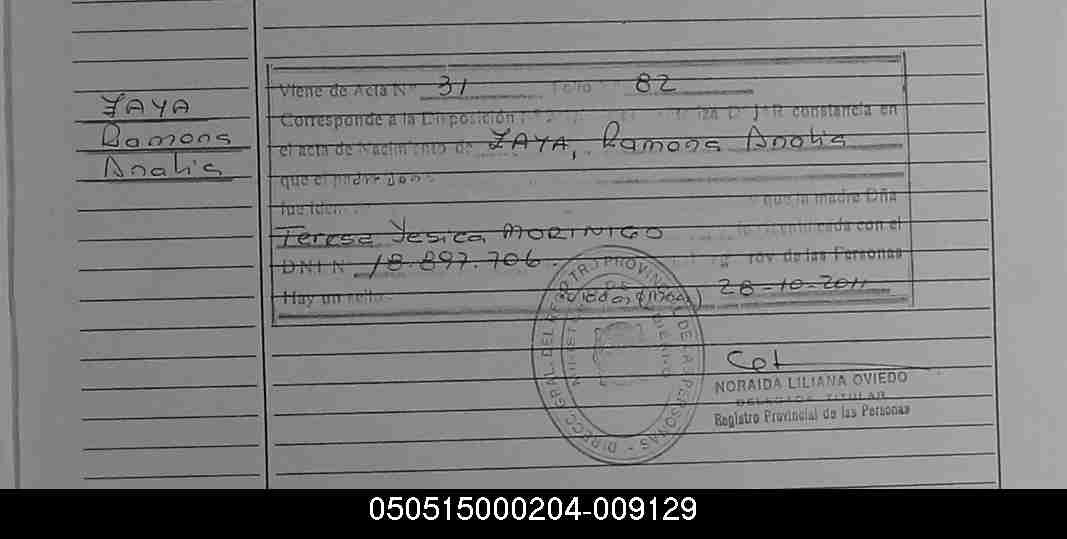 ZAYA
Ramona
Analia
Viene de Acta Nº 31 Folio 82
Corresponde a la Disposición constancia en
el acta de Nacimiento de ZAYA, Ramona Analia
que el padre Don
fue iden
que la madre Dña
Teresa Yesica MORINIGO identificada con el
DNI Nº 18.897.706. Prov. de las Personas
Hay un sello. 28-10-2011
DIRECC. GRAL. DEL REGISTRO PROVINCIAL DE LAS PERSONAS
NORAIDA LILIANA OVIEDO
DELEGADA TITULAR
Registro Provincial de las Personas
050515000204-009129